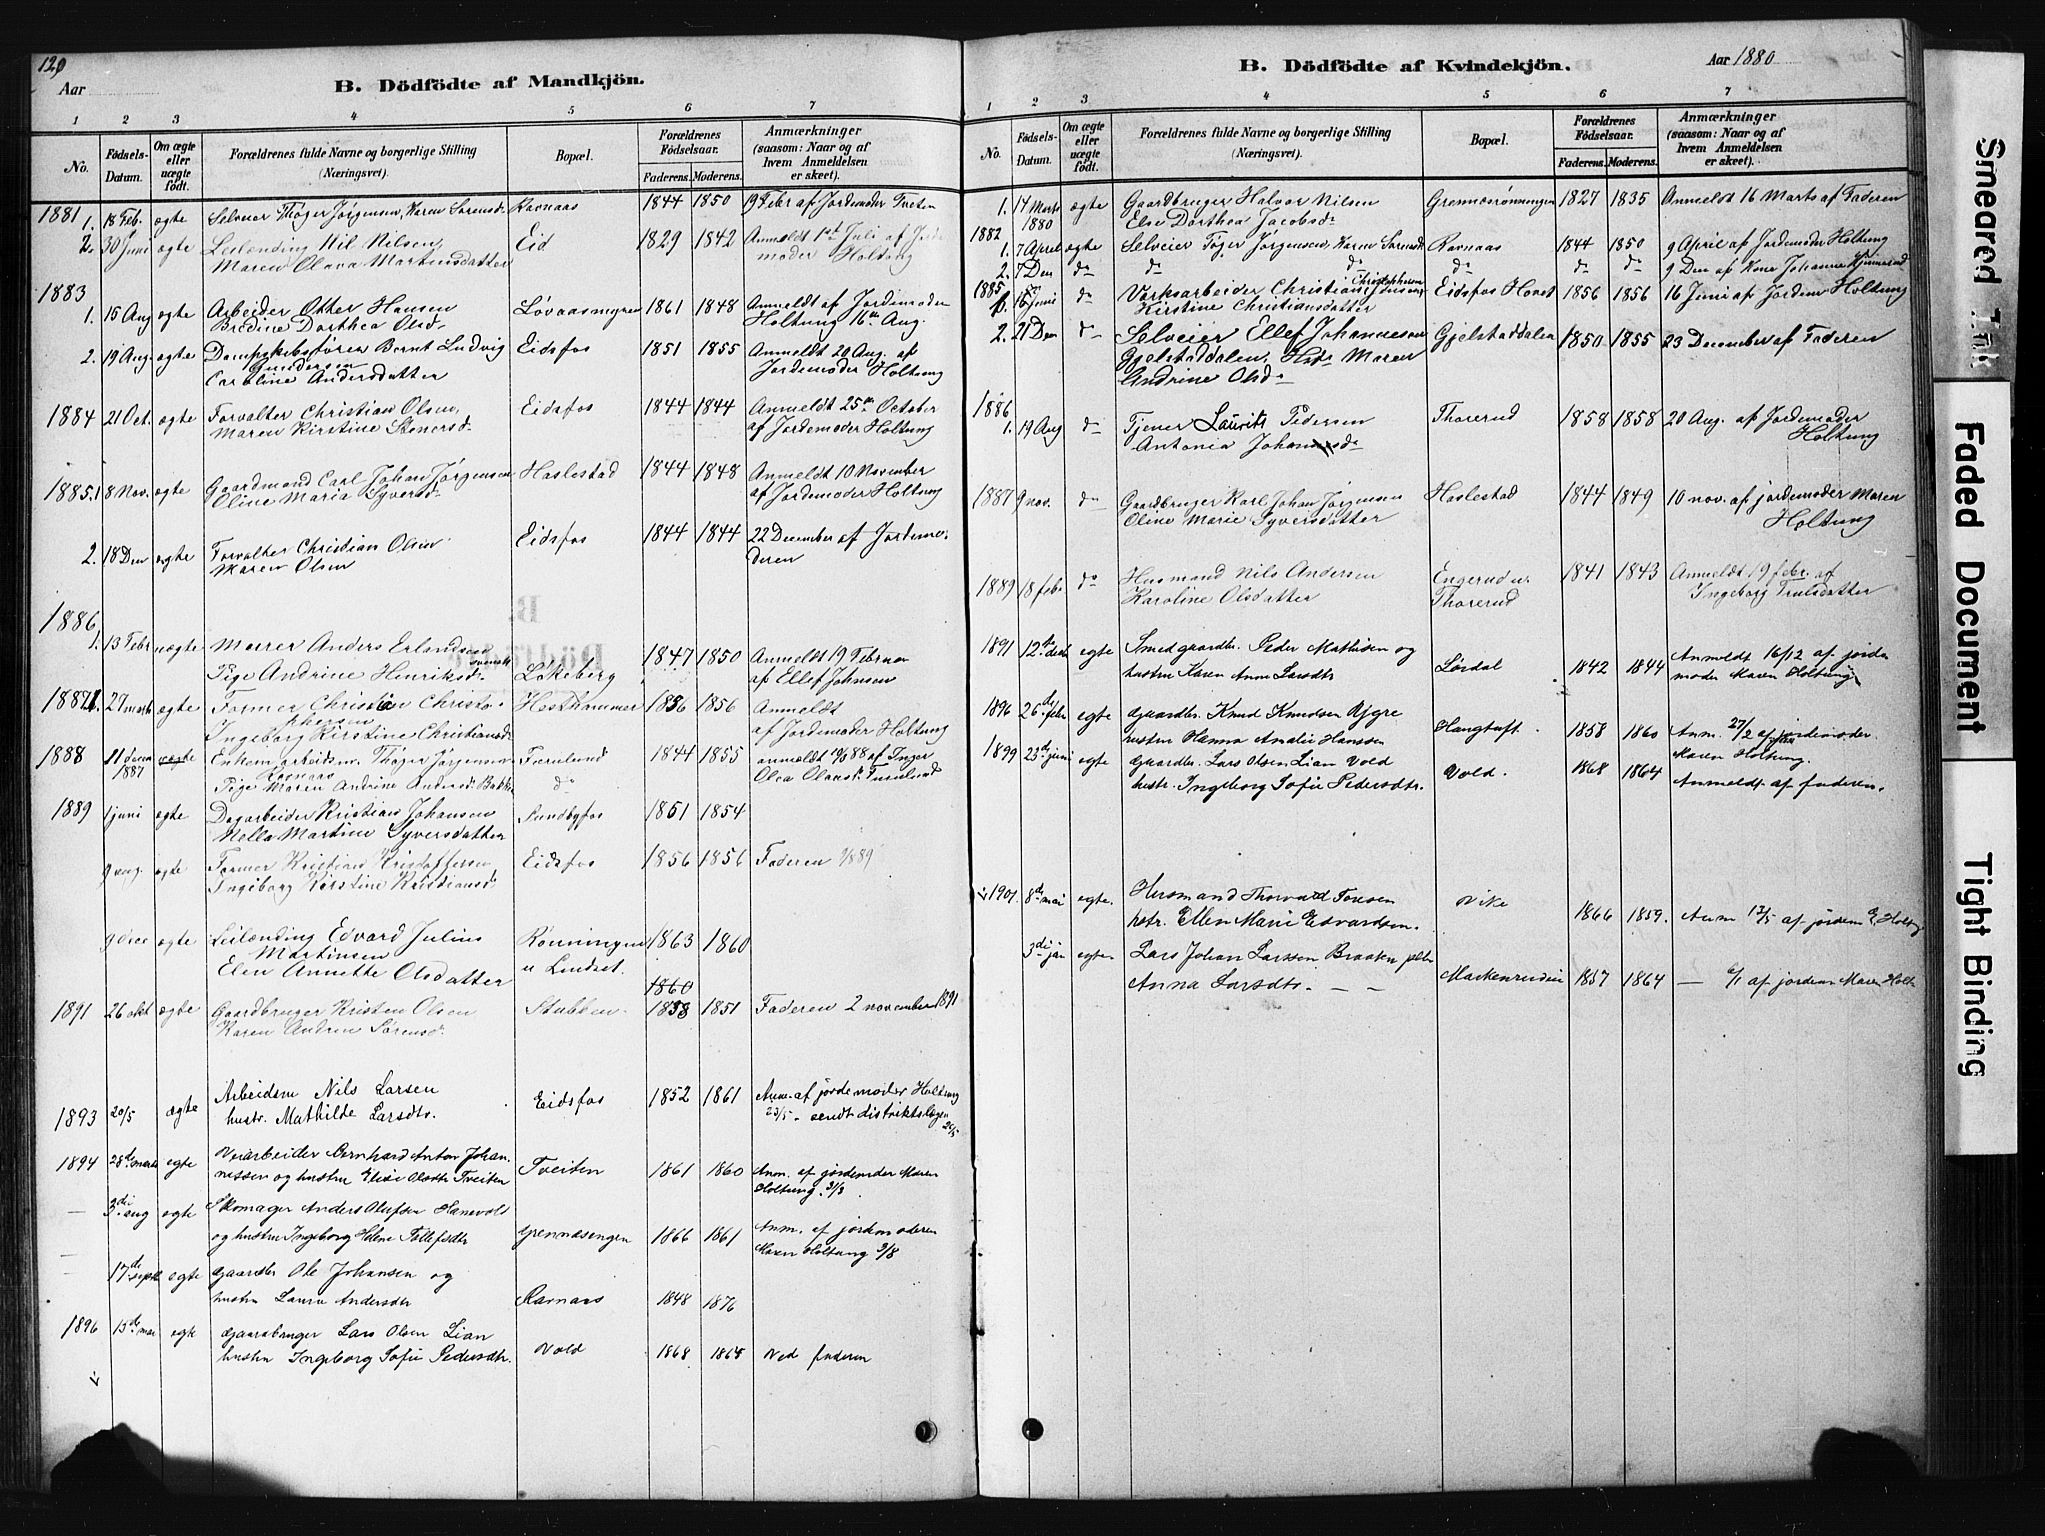 120
Aar
B. Dödfödte af Mandkjön.
1 2 3 4 5 6 7
No. Födsels-Datum. Om ægte eller uægte födt. Forældrenes fulde Navne og borgerlige Stilling (Næringsvei). Bopæl. Forældrenes Födselsaar. Faderens. Moderens. Anmærkninger (saasom: Naar og af hvem Anmeldelsen er skeet).
1881
1. 18 Feb. ægte Selveier Thøger Jørgensen, Karen Sørensd. Ravnaas 1844 1850 9 Febr af Jordemoder Tveten
2. 30 Juni ægte Leilending Nil Nilsen, Eid 1829 1842 Anmeldt 1st Juli af Jorde
Maren Olava Martinsdatter moder Holtung
1883
1. 15 Aug ægte Arbeider Otter Hansen Løvaasmyren 1861 1848 Anmeldt af Jordemoder
Bredine Dorthea Olsd. Holtung 16de Aug.
2. 19 Aug. ægte Dampskibsfører Bernt Ludvig Eidsfos 1851 1855 Anmeldt 20 Aug. af
Gundersen
Caroline Andersdatter Jordemoder Holtung
1884 21 Oct. ægte Forvalter Christian Olsen, Eidsfos 1844 1844 Anmeldt 25de October
Maren Kirstine Stenersd. af Jordemoder Holtung
1885. 1 8 Nov. ægte Gaardmand Carl Johan Jørgensen Haslestad 1844 1848 Anmeldt 10 November
Oline Maria Syversd. af Jordemoder Holtung
2. 18 Den ægte Forvalter Christian Olsen Eidsfos 1844 1844 22 December af Jordemo-
Maren Olsen deren
1886
1. 13 Febr uægte Murer Anders Erlandsen 1847 1850 Anmeldt 19 Februar
svensk
Pige Andrine Henriksd. Løkeberg af Ellef Johnsen
1887 1. 27 marts ægte Former Christian Christo- Hesthammer 1856 1856 Anmeldt
phersen
Ingeborg Kirstine Christiansd. af Jordemoder Holtung
1888 11 decem 1887 uægte Enkem. arbeidsm. Thøger Jørgensen Furulund 1844 1855 anmeldt 88 af Inger
Ravnaas
Pige Maren Andrine Andersd. Bakke do Olea Olausd. Furulund
1889 1 juni ægte Dagarbeider Kristian Johansen Sundbyfos 1851 1854
Nella Martine Syversdatter
9 aug. ægte Former Kristian Kristoffersen Eidsfos 1856 1856 Faderen
Ingeborg Kirstine Kristiansd.
9 dec ægte Leilending Edvard Julius Rønningen 1863 1860
Martinsen u Lindset.
Elen Annette Olsdatter
1860
1891 26 okt ægte Gaardbruger Kristen Olsen Stubben 1838 1851 Faderen 2 november 1891
Karen Andrea Sørensd.
1893 20/5 ægte Arbeidsm Nils Larsen Eidsfos 1852 1861 Anm. af jordemoder Holtung
hustr. Mathilde Larsdtr. 23/5 - sendt distriktslægen 26/5
1894 28de marts egte Veiarbeider Bernhard Anton Johan- Tveiten 1861 1860 Anm. af jordemoder Maren
nessen og hustru Elise Olsdtr Tveiten Holtung
3di aug egte Skomager Anders Olufsen Hanevold
og hustru Ingeborg Helene Tollefsdtr Grennæsengen 1866 1861 Anm. af jordemoderen
Maren Holtung 9/8
17de septb egte Gaardbr Ole Johansen og
hustru Laura Andersdtr Ravnaas 1848 1876
1896 15de mai egte Gaardbruger Lars Olsen Lian
hustru Ingeborg Sofie Pedersdtr. Vold 1868 1864 Ved faderen
B. Dödfödte af Kvindekjön.
Aar 1880
1 2 3 4 5 6 7
No. Födsels-Datum. Om ægte eller uægte födt. Forældrenes fulde Navne og borgerlige Stilling (Næringsvei). Bopæl. Forældrenes Födselsaar. Faderens. Moderens. Anmærkninger (saasom: Naar og af hvem Anmeldelsen er skeet).
1. 14 Marts 1880 ægte Gaardbruger Halvor Nilsen Grennæsrønningen 1827 1835 Anmeldt 16 Marts af Faderen
Else Dorthea Jacobsd.
1882
1. 7 April ægte Selveier Tøger Jørgensen, Karen Sørensd. Ravnaas 1844 1850 9 April af Jordemoder Holtung
2. 7 Den do do do do do do 9 Den af Kone Johanne
1885
1. 16 Juni do Værksarbeider Christian Christophersen Eidsfos Hovet 1856 1856 16 Juni af Jordem Holtung
Kirstine Christiansdatter
2. 21 Den do Selveier Ellef Johannesen Gjelstaddalen 1850 1855 23 December af Faderen
Gjelstaddalen, Hstr Maren
Andrine Olsd.
1886
1. 19 Aug do Tjener Laurits Pedersen Thorerud 1858 1858 20 Aug. af Jordemoder
Antonia Johansd. Holtung
1887 9 nov. do Gaardbruger Karl Johan Jørgensen Haslestad 1844 1849 10 nov. af jordemoder Maren
Oline Marie Syversdatter Holtung
1889 18 febr do Husmand Nils Andersen Engerud u 1841 1843 Anmeldt 19 febr. af
Karoline Olsdatter Thorerud Ingeborg Trulsdatter
1891 12te decb egte Smed gaardbr. Peder Mathisen og
hustru Karen Anne Larsdtr Lørdal 1842 1844 Anmeldt 16/12 af jorde
moder Maren Holtung
1896 26de febr egte Gaardbr. Knud Knudsen Bjgre
hustru Hanna Amalie Hanssen Haugtuft 1858 1860 Anm. 27/2 af jordemoder
Maren Holtung.
1899 23de juni egte Gaardbr. Lars Olsen Lian Vold Vold. 1868 1864
hustr. Ingeborg Sofie Pedersdtr. Anmeldt af faderen.
1901 8de mai egte. Husmand Thorvald Toresen Vike
hstr. Ellen Marie Edvardsen. 1866 1859. Anm 17/5 af jordem E. Holtung
3di jan egte Lars Johan Larssen Braaten
Anna Larsdtr. — — Markenrudeie 1857 1864 — 6/1 af jordem Maren Holt.
Smeared Ink
Faded Document
Tight Binding